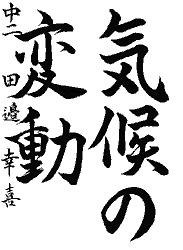 気候の
変動
中二 田邉 幸喜